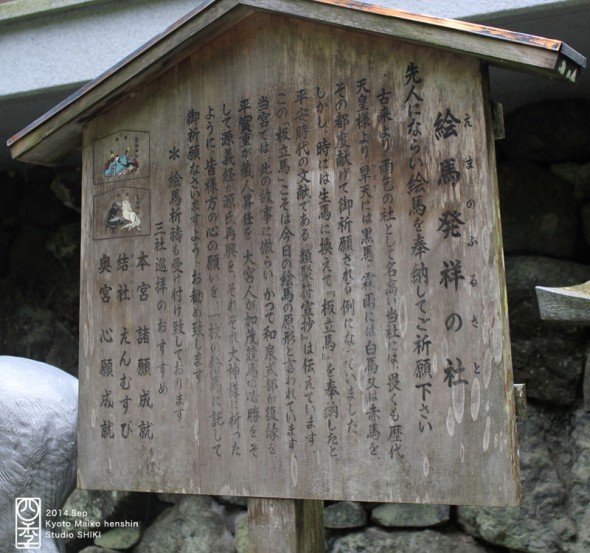 えまのふるさと
絵馬発祥の社
先人にならい絵馬を奉納してご祈願下さい
古来より雨乞の社として名高い当社には、畏くも歴代
天皇様より旱天には黒馬、霖雨には白馬又は赤馬を、
その都度献げて御祈願される例になっていました。
しかし、時には生馬に換えて『板立馬』を奉納したと、
平安時代の文献である『類聚符宣抄』は伝えています。
この『板立馬』こそは今日の絵馬の原形と言われています。
当宮では、此の故事に倣らい、かつて和泉式部が復縁を
して源義経が源氏再興を、それぞれ大神様に祈った
ように、皆様方の心の願いを、一枚の絵馬に託して
御祈願なさいますようお勧め致します
※ 絵馬祈祷も受け付け致しております、
三社巡拝のおすすめ
本宮 諸願成就
結社 えんむすび
奥宮 心願成就
四季
2014.Sep
Kyoto Maiko henshin
Studio SHIKI